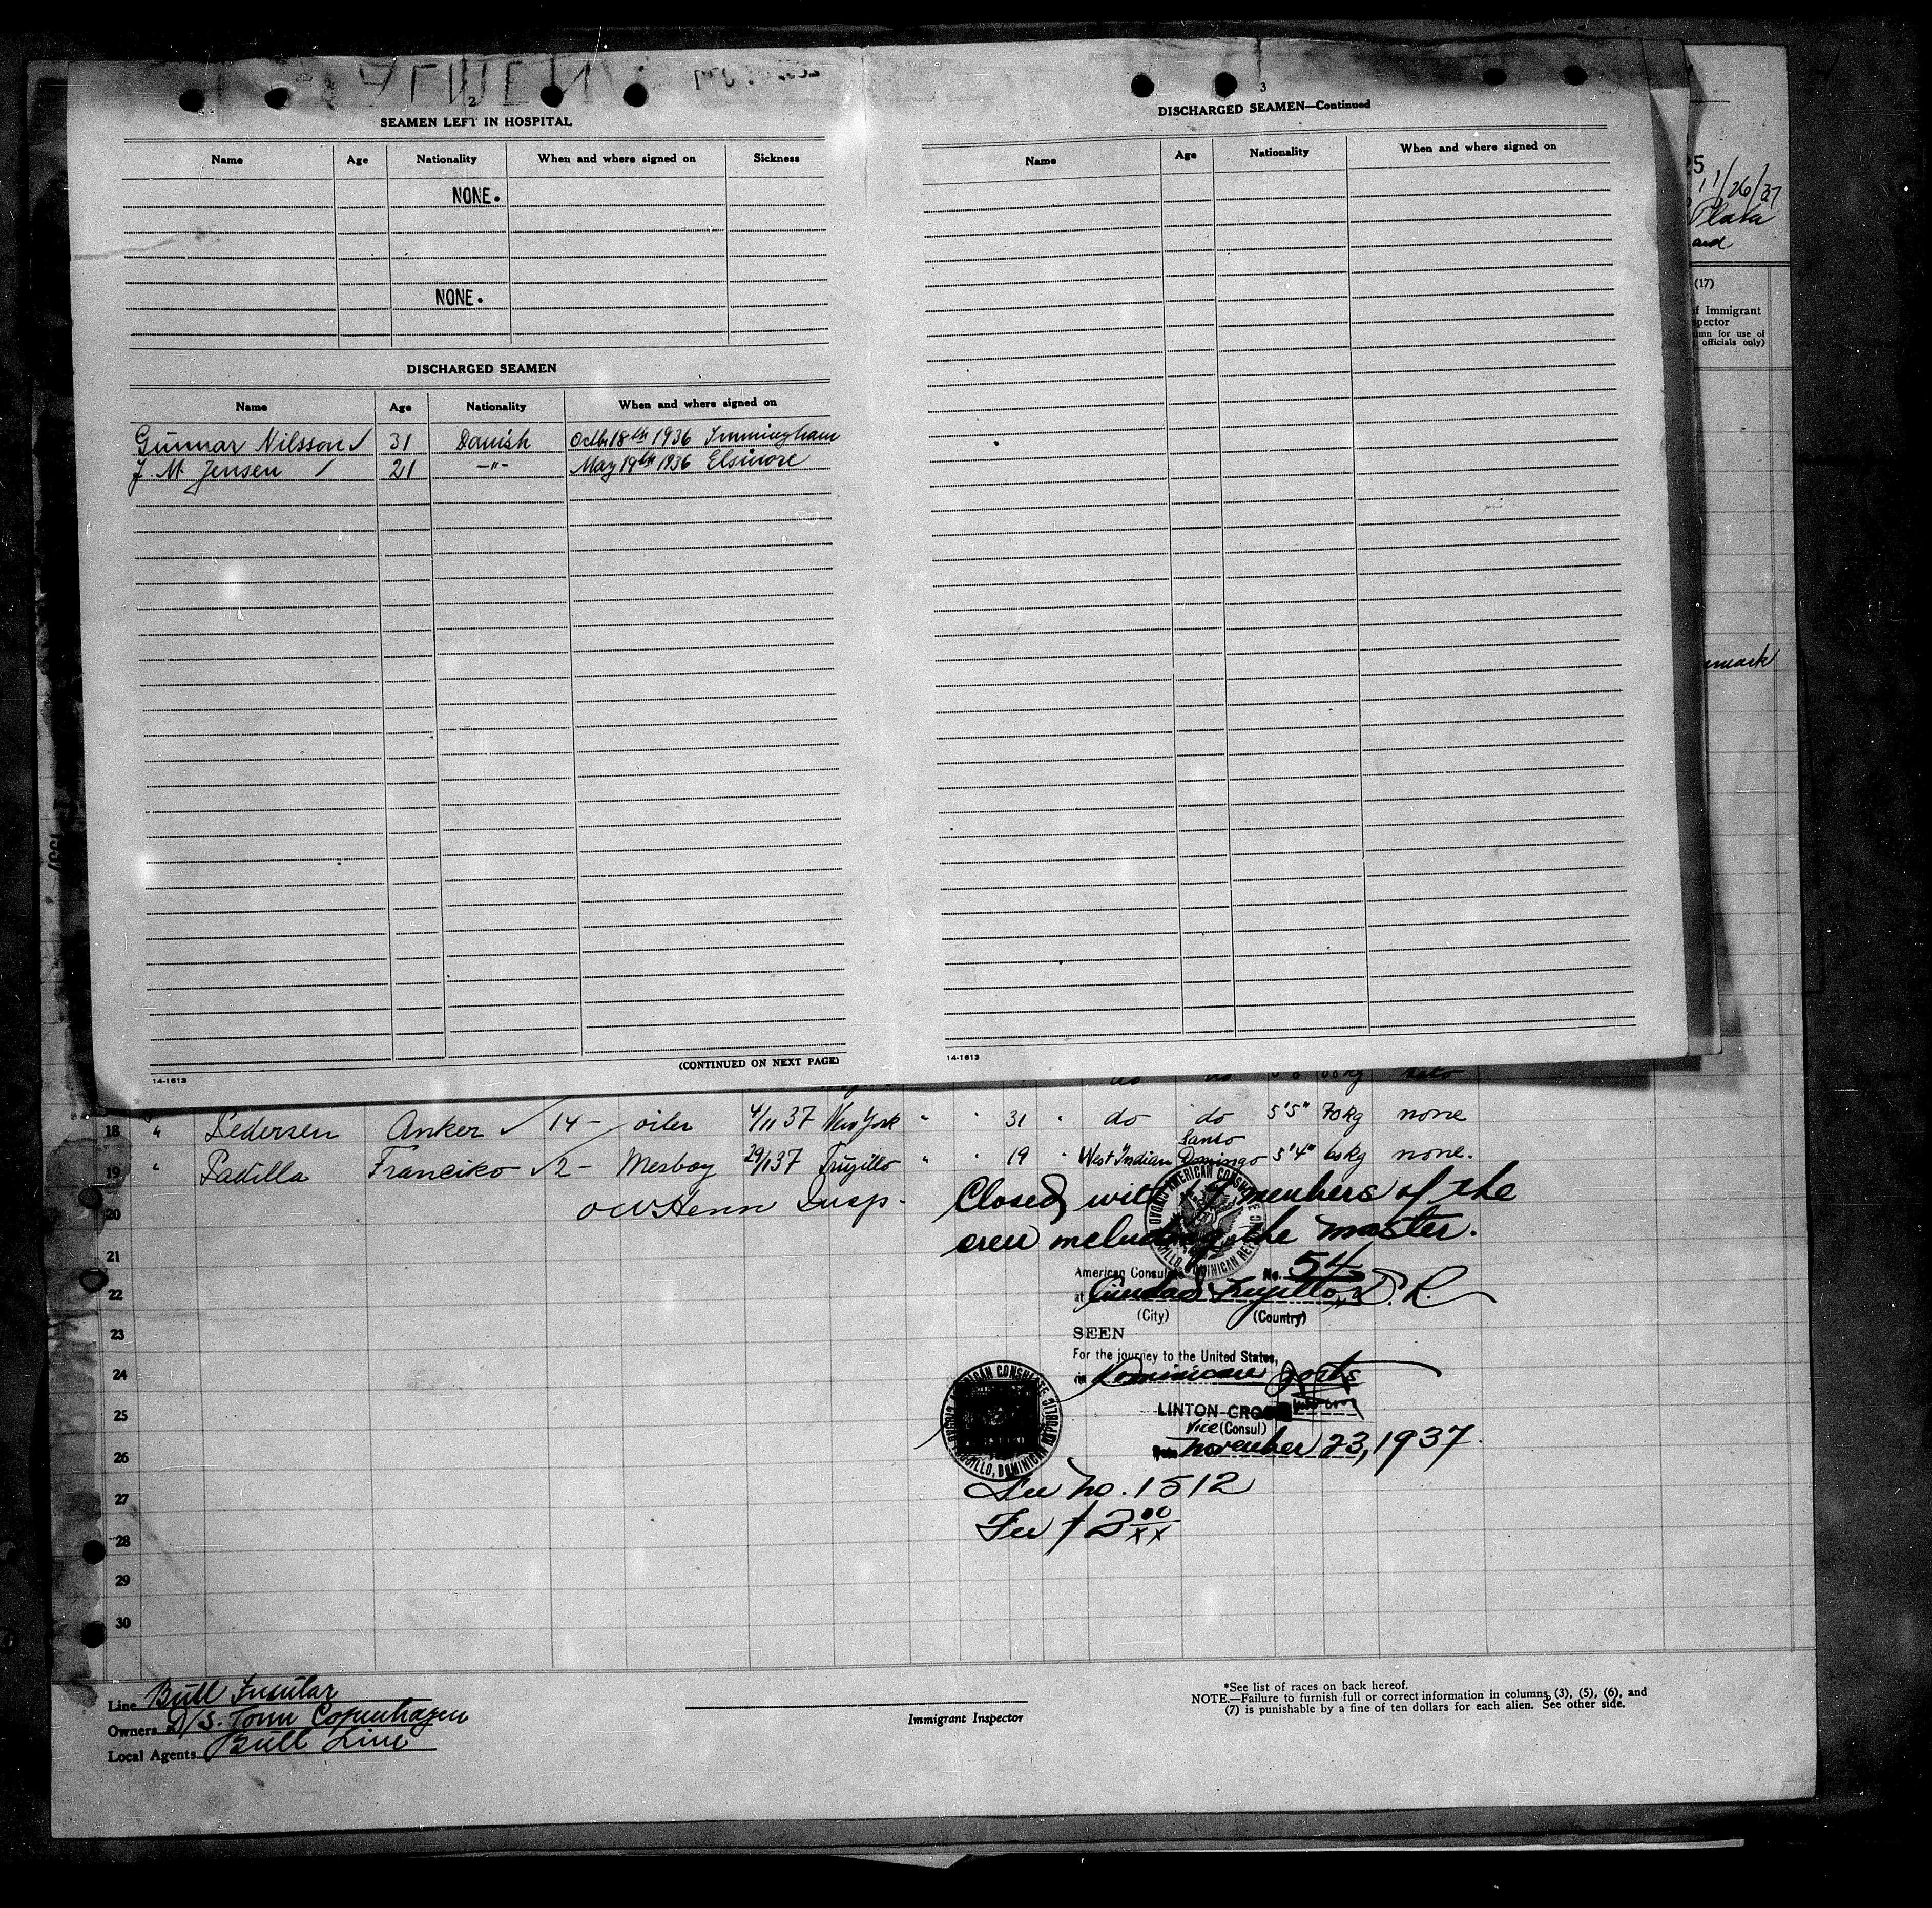 2
SEAMEN LEFT IN HOSPITAL
Name Age Nationality When and where signed on Sickness
NONE.
NONE.
DISCHARGED SEAMEN
Name Age Nationality When and where signed on
Gunnar Nilsson ✓ 31 Danish Octb. 18th 1936 Immingham
J. M. Jensen / 21 -"- May 19th 1936 Elsinore
(CONTINUED ON NEXT PAGE)
14-1613
3
DISCHARGED SEAMEN—Continued
Name Age Nationality When and where signed on
14-1613
25
11/26/37
Plata
and
(17)
of Immigrant
spector
umn for use of
officials only)
nmark
18 " Pedersen Anker ✓ 14- oiler 4/11 37 New York " " 31 " do do 5'5" 70kg none
19 " Padilla Franciko ✓ 2- Mesboy 29/1 37 Trujillo " " 19 " West Indian Santo Domingo 5'4" 60kg none.
20
21
22
23
24
25
26
27
28
29
30
Closed with 19 members of the
crew including the master.
American Consulate No. 54
at Ciudad Trujillo, D.R.
(City) (Country)
SEEN
For the journey to the United States,
via Dominican ports
LINTON CROOK
Vice (Consul)
Date November 23, 1937
AMERICAN CONSULATE
CIUDAD TRUJILLO, DOMINICAN REPUBLIC
No. 1512
Fee $2 00/xx
Line Bull Insular
Owners D/S. Torm Copenhagen
Local Agents Bull Line
Immigrant Inspector
*See list of races on back hereof.
NOTE.—Failure to furnish full or correct information in columns (3), (5), (6), and
(7) is punishable by a fine of ten dollars for each alien. See other side.